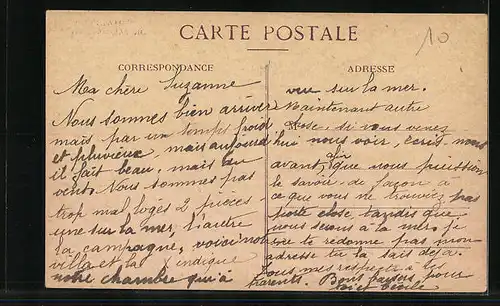 10
CARTE POSTALE
CORRESPONDANCE
Ma chère Suzanne
Nous sommes bien arriver
mais par un temps froid
et pluvieux, mais aujourd
il fait beau, mais du
vent. Nous sommes pas
trop mal logés 2 pièces
une sur la mer, l'autre
la campagne, voici notre
villa et la indique
notre chambre qui à
ADRESSE
vue sur la mer.
Maintenant autre
chose, si vous venez
hui nous voir, écris nous
avant, afin que nous puission
le savoir, de façon à
ce que vous ne trouviez pas
porte close, tandis que
nous serons à la mer. Je
te redonne pas mon
adresse tu la sais déjà.
tous mes respects à tes
parents. Bons baisers pour
toi et Cécile